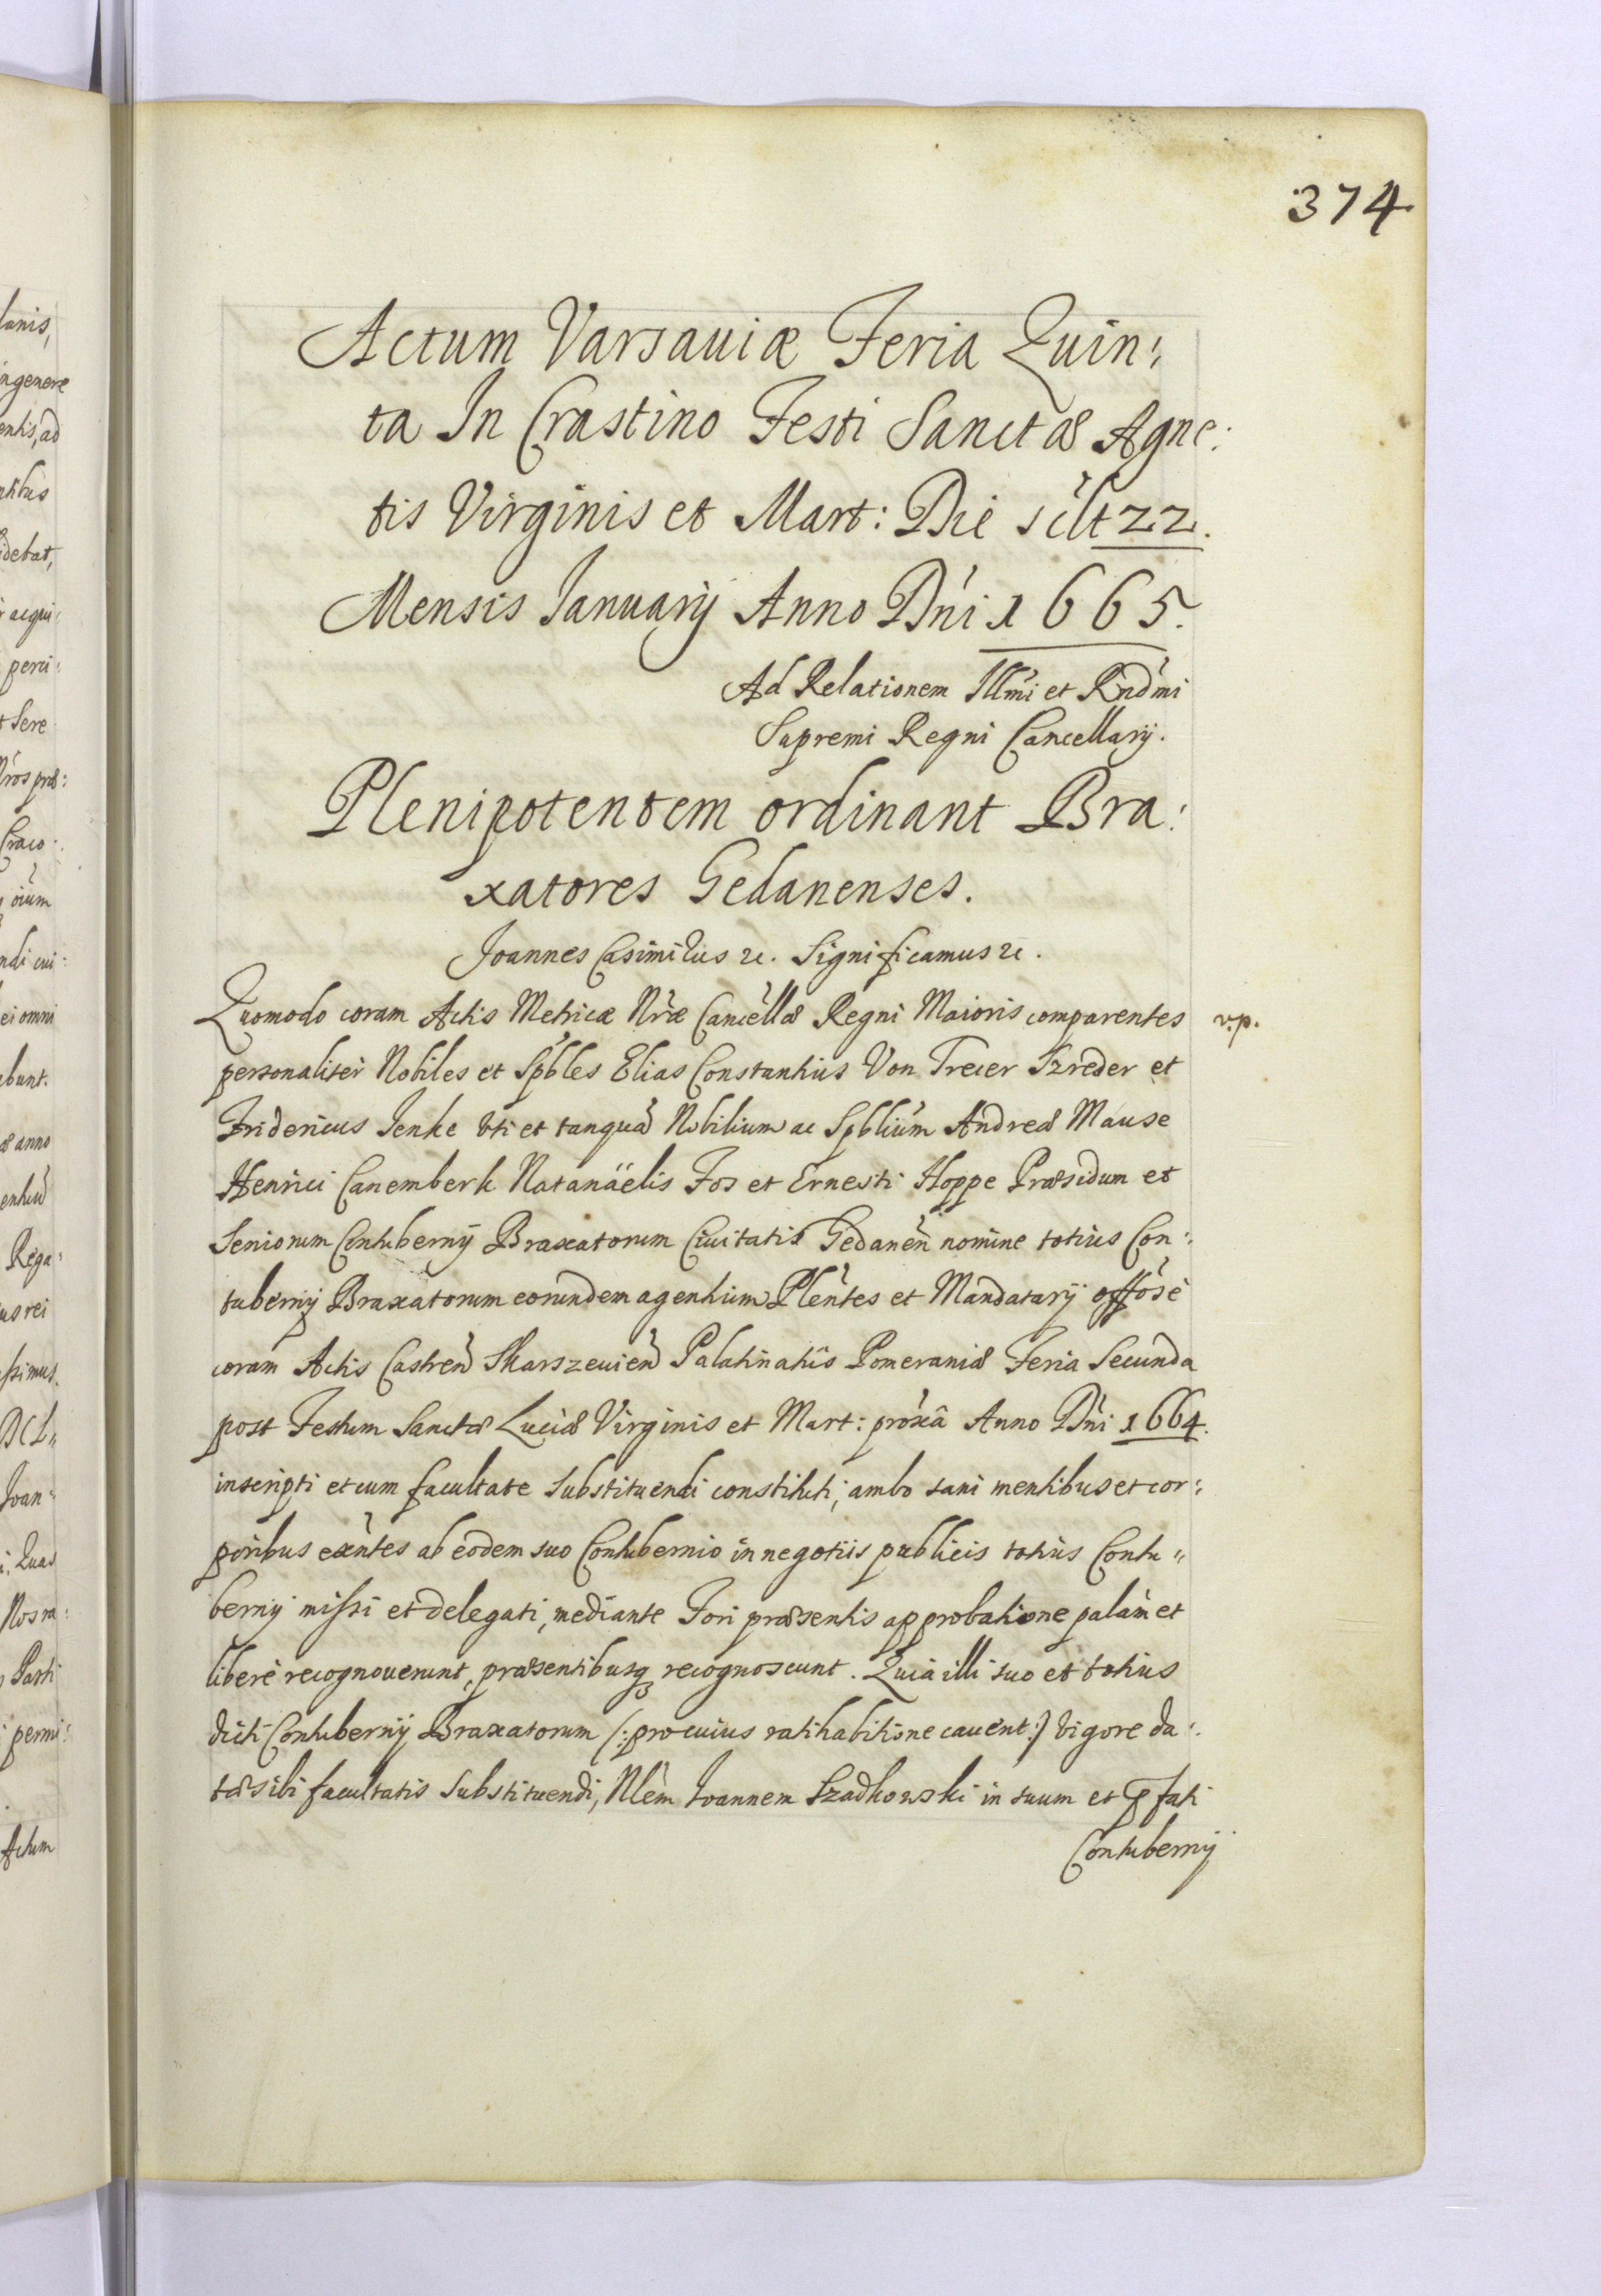 374
Actum Varsauiæ Feria Quin:
ta In Crastino Festi Sanctæ Agne:
tis Virginis et Mart: Die sclt 22.
Mensis Ianuarij Anno Dni 1665.
Ad Relationem Illmi et Rndmi
Supremi Regni Cancellarij.
Plenipotentem ordinant Bra:
xatores Gedanenses.
Joannes Casimirus etc. Significamus etc.
Quomodo coram Actis Metricæ Nræ Cancellæ Regni Maioris comparentes
v.p.
personaliter Nobiles et Spbles Elias Constantius Von Trecer Szreder et
Fridericus Jenke vti et tanquã Nobilium ac Spblium Andreæ Mause
Henrici Canemberk Natanäelis Fos et Ernesti Hoppe Præsidum et
Seniorum Contubernij Braxatorum Ciuitatis Gedanen nomine totius Con:
tubernij Braxatorum eorundem agentium Plentes et Mandatarij offose
coram Actis Castren Skarszeuien Palatinatûs Pomeraniæ Feria Secunda
post Festum Sanctæ Luciæ Virginis et Mart: proxã Anno Dni 1664.
inscripti et cum facultate substituendi constituti, ambo sani mentibus et cor:
poribus exntes ab eodem suo Contubernio in negotiis publicis totius Contu"
bernij missi et delegati, mediante Fori præsentis approbatione palàm et
liberè recognouerunt, præsentibusq recognoscunt. Quia illi suo et totius
dicti Contubernij Braxatorum (: pro cuius ratihabitione cauent:) vigore da:
tæ sibi facultatis substituendi, Nlem Joannem Szadkowski in suum et pfati
Contubernij